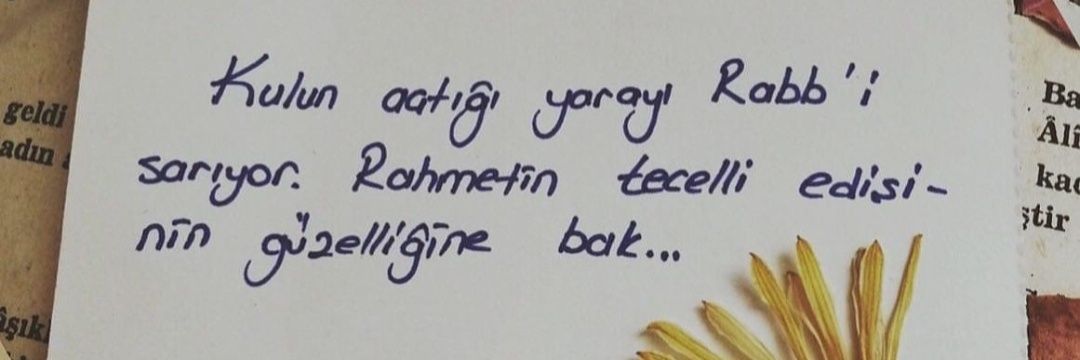 geldi
adın
âşık
Kulun açtığı yarayı Rabb'i
sarıyor. Rahmetin tecelli edişi-
nin güzelliğine bak...
Ba
Âli
kad
ştir